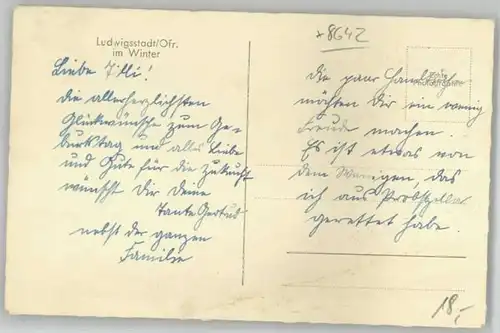 Ludwigsstadt/Ofr.
im Winter
+8642
Liebe Tilli!
Die allerherzlichsten
Glückwünsche zum Ge-
burtstag und alles Liebe
und Gute für die Zukunft
wünscht Dir Deine
Tante Gertrud
nebst der ganzen
Familie
Die paar
möchten Dir ein wenig
Freude machen.
Es ist etwas von
dem Wenigen, das
ich aus Probstzella
gerettet habe.
18,-